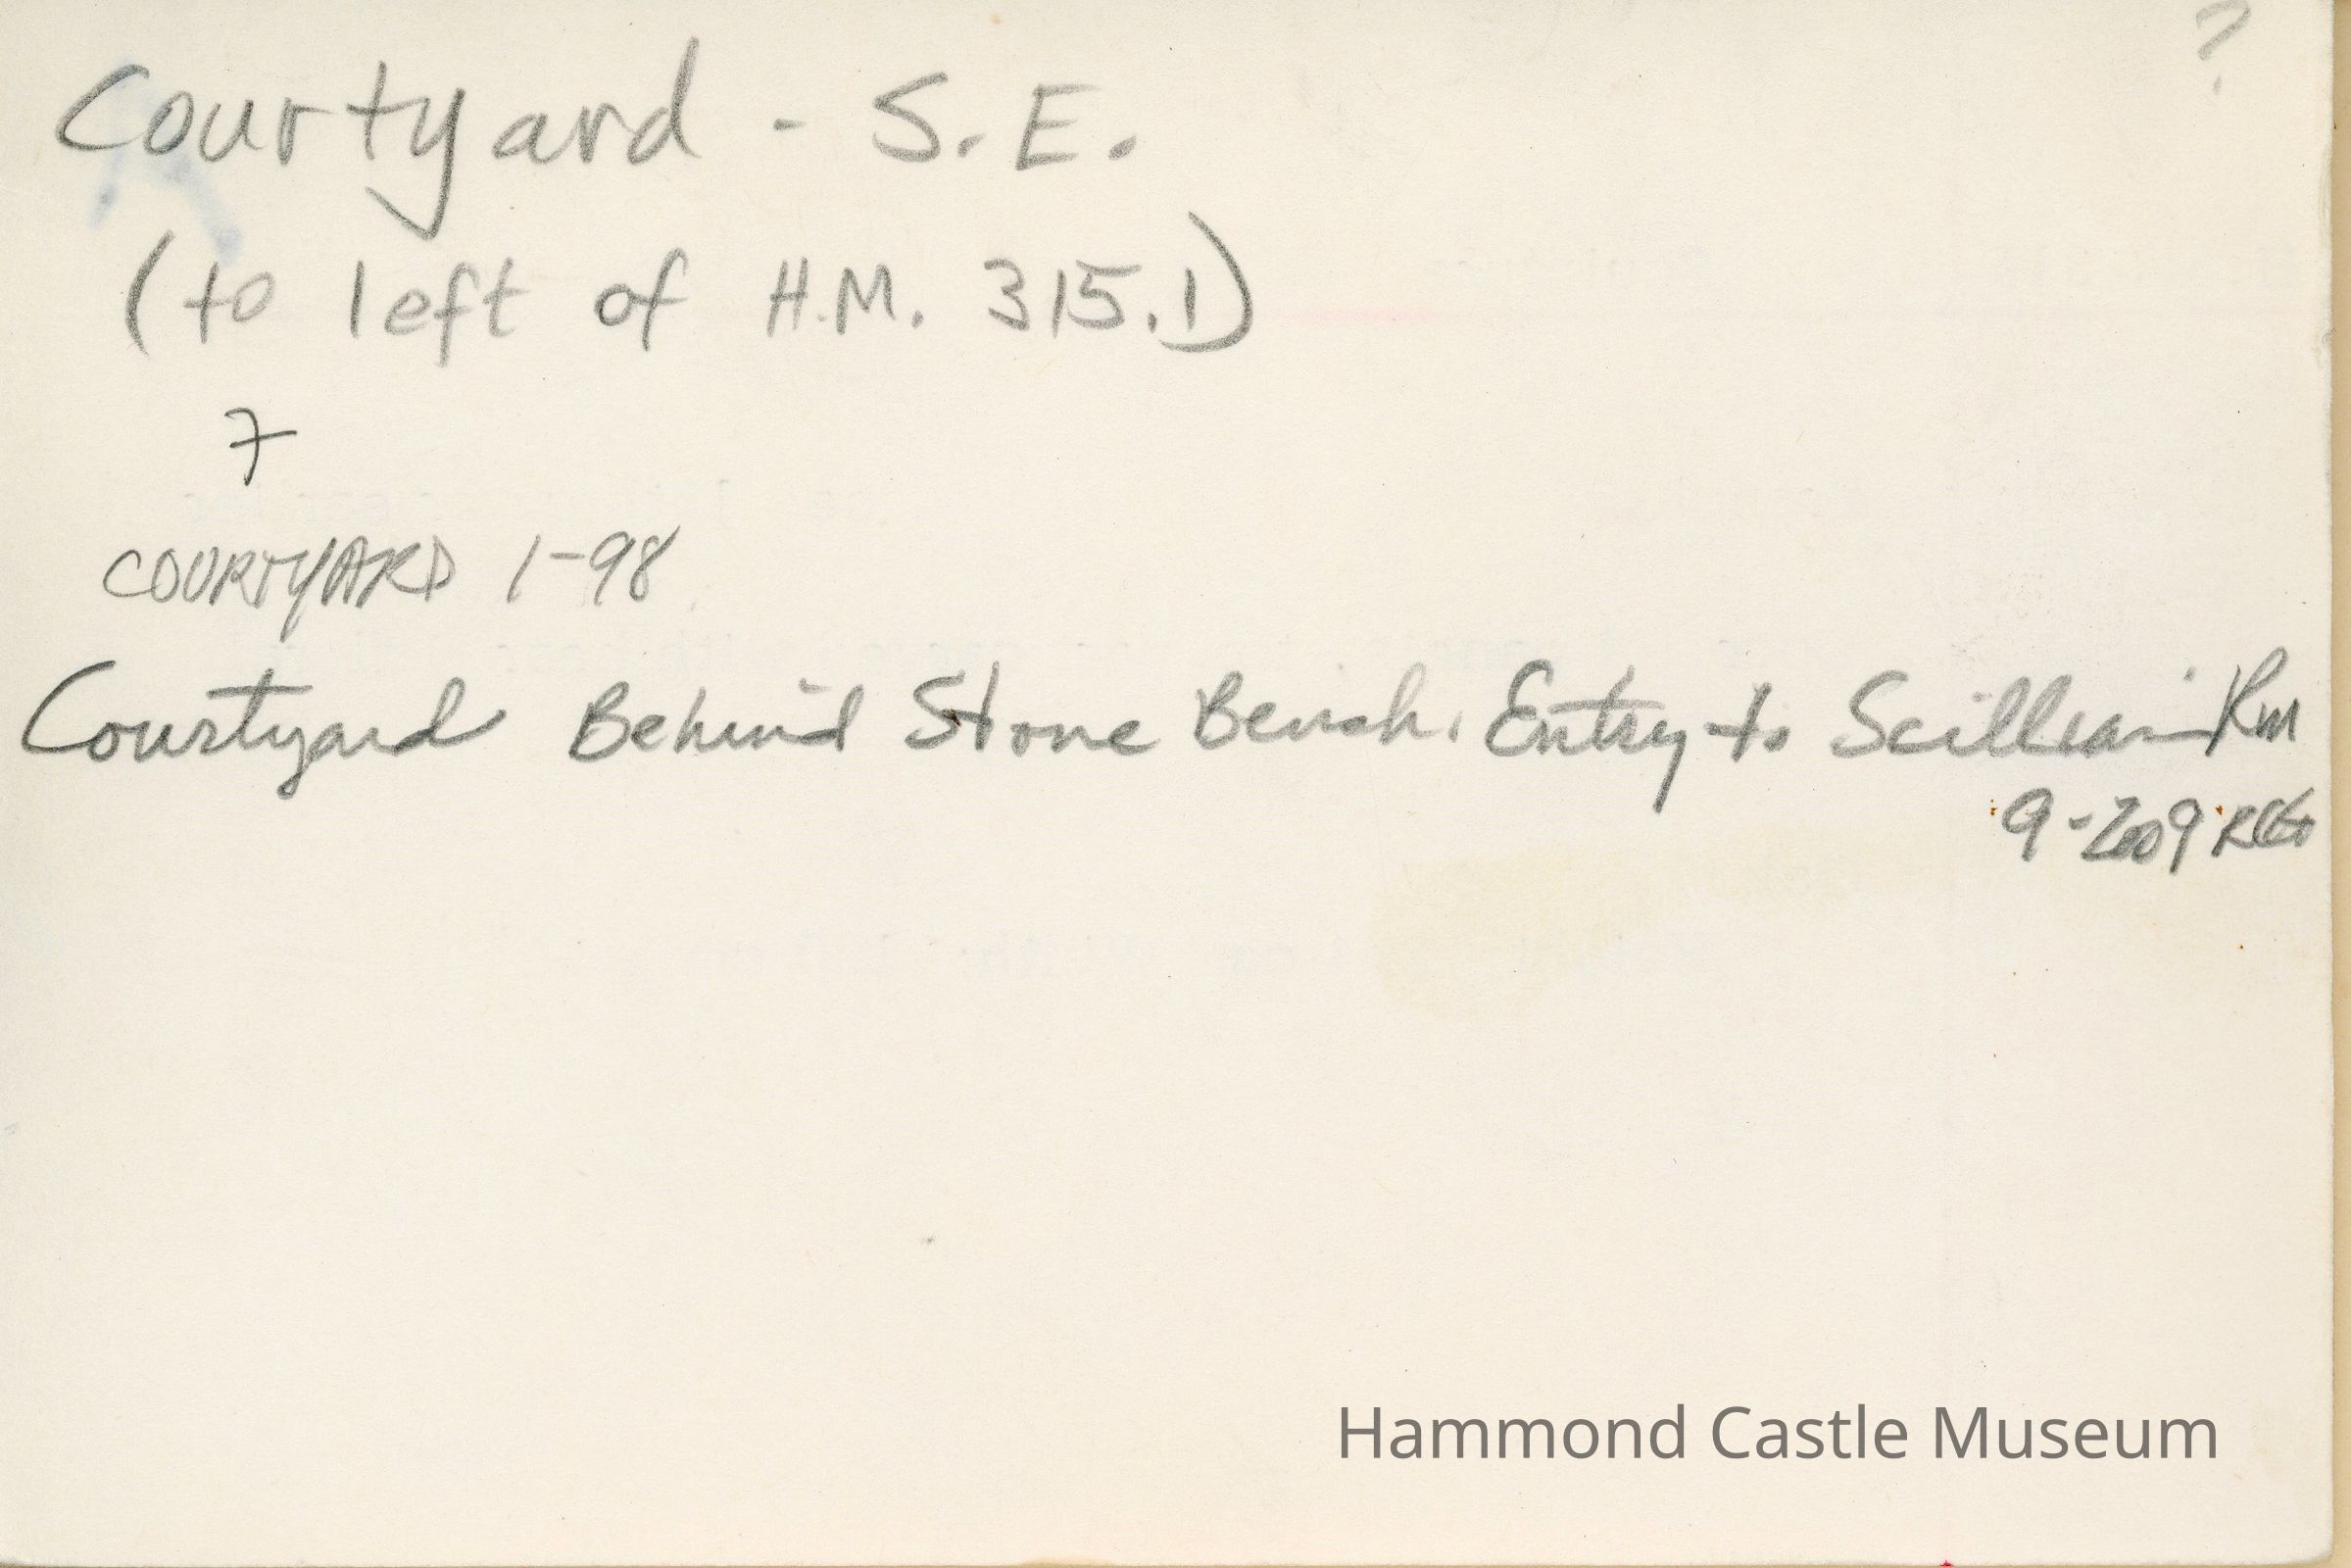 ?
Courtyard - S.E.
(to left of H.M. 315.1)
7
COURTYARD 1-98
Courtyard Behind Stone Bench. Entry to Scillian Rm
9-2009
Hammond Castle Museum